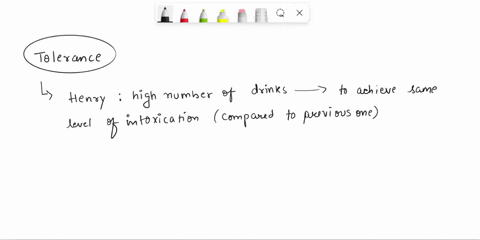 Tolerance
↳ Henry : high number of drinks ⟶ to achieve same
level of intoxication (compared to previous one)